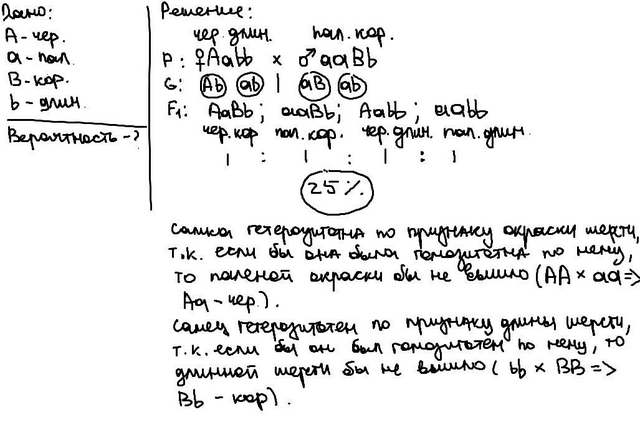 Дано:
А - чер.
а - пал.
В - кор.
b - длин.
Вероятность - ?
Решение:
чер. длин. пал. кор.
P: ♀Aabb x ♂ aaBb
G: Ab ab | aB ab
F1: AaBb; aaBb; Aabb; aabb
чер. кор пал. кор. чер. длин. пал. длин.
1 : 1 : 1 : 1
25%
Самка гетерозиготна по признаку окраски шерсти,
т.к. если бы она была гомозиготна по нему,
то паленой окраски бы не вышло (AA x aa =>
Aa - чер.).
Самец гетерозиготен по признаку длины шерсти,
т.к. если бы он был гомозиготен по нему, то
длинной шерсти бы не вышло (bb x BB =>
Bb - кор).